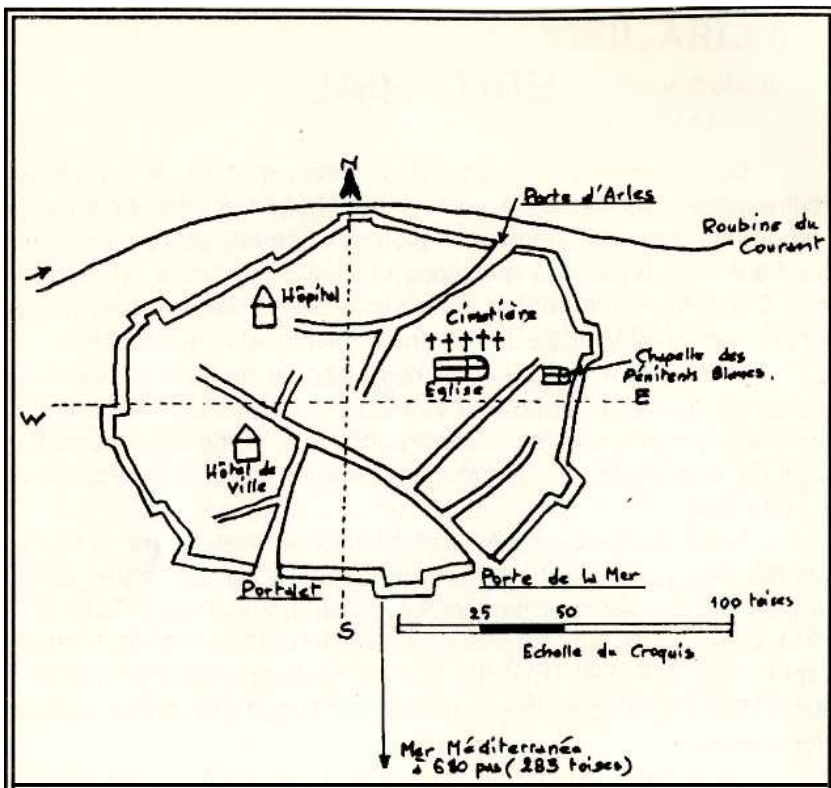 N
Porte d'Arles
Roubine du
Courant
Hôpital
Cimetière
Eglise
Chapelle des
Pénitents Blancs.
E
W
Hôtel de
Ville
Portalet
Porte de la Mer
S
25 50 100 toises
Echelle du Croquis
Mer Méditerranée
à 680 pas (283 toises)